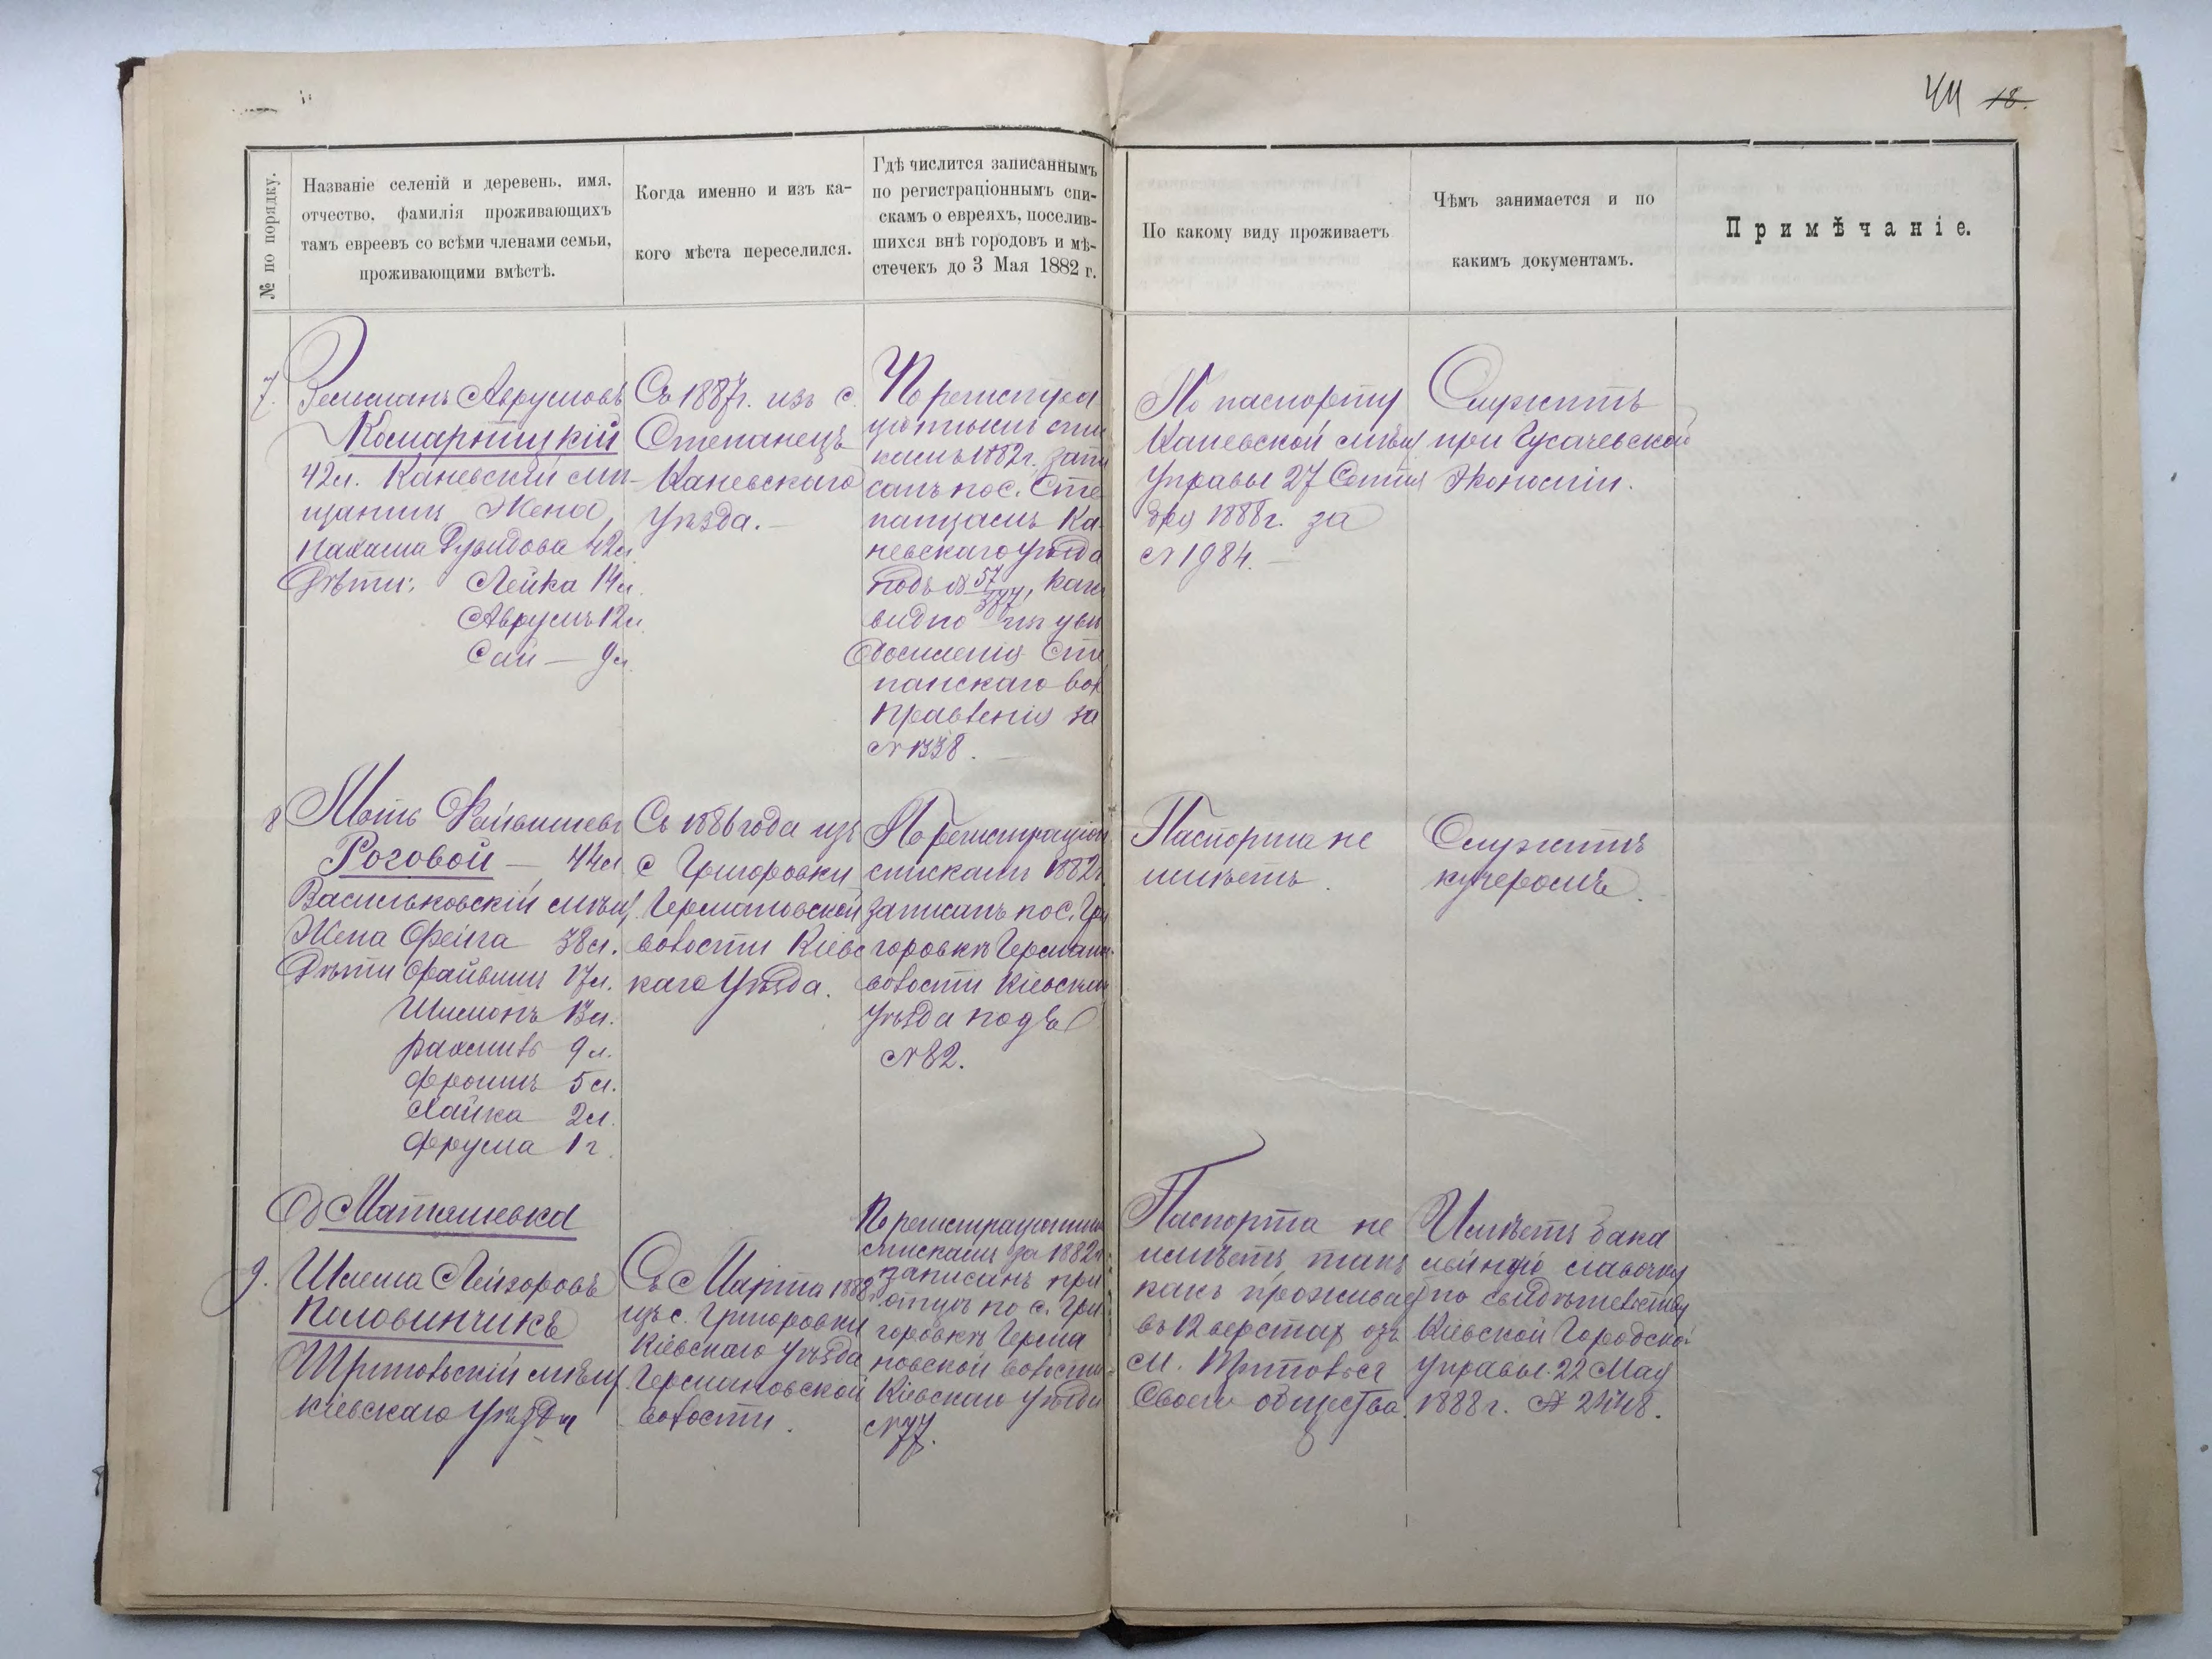 44 18.
№ по порядку.
Названіе селеній и деревень, имя,
отчество, фамилія проживающихъ
тамъ евреевъ со всѣми членами семьи,
проживающими вмѣстѣ.
Когда именно и изъ ка-
кого мѣста переселился.
Гдѣ числится записаннымъ
по регистраціоннымъ спи-
скамъ о евреяхъ, поселив-
шихся внѣ городовъ и мѣ-
стечекъ до 3 Мая 1882 г.
По какому виду проживаетъ
Чѣмъ занимается и по
какимъ документамъ.
Примѣчаніе.
7.
Зельманъ Аврумовъ
Комарницкій
42 л. Каневскій мѣ-
щанинъ Жена
Дувидова 42 л
Дѣти: Лейка 14 л.
Аврумъ 12 л.
9 л.
Съ 1887 г. изъ с.
Степанецъ
Каневскаго
уѣзда.
По регистра
ціоннымъ спи
скамъ 1882 г. запи
санъ по с. Сте
панцамъ Ка
невскаго уѣзда
подъ № 57/377, какъ
видно изъ уви
домленія Сте
панскаго вол
Правленія за
№ 1338.
По паспорту
Каневской мѣщ
Управы 27 Сентя
бря 1888 г. за
№ 1984.
Служитъ
при Гусачевской
Экономіи.
8
Мотъ Файвишевъ
Роговой — 44 л
Васильковскій мѣщ.
Жена Фейга 38 л.
Дѣти Файвишъ 17 л.
Шимонъ 13 л.
Рахмиль 9 л.
Фроимъ 5 л.
Хайка 2 л.
Фрума 1 г.
Съ 1886 года изъ
с Григоровки
Германовской
волости Кіевс
каго Уѣзда.
По регистраціон
спискамъ 1882 г.
записанъ по с. Гри
горовкѣ Герман.
волости Кіевскаго
уѣзда подъ
№ 82.
Паспорта не
имѣетъ.
Служитъ
кучеромъ.
Д Матяшевка
9.
Шлема Лейзоровъ
Половинчикъ
Тритольскій мѣщ.
Кіевскаго Уѣзда
Съ Марта 1882
изъ с. Григоровки
Кіевскаго уѣзда
Германовской
волости.
По регистраціоннымъ
спискамъ за 1882 г.
записанъ при
отцѣ по с. Гри
горовкѣ Герма
новской волости
Кіевскаго уѣзда
№ 77.
Паспорта не
имѣетъ, такъ
какъ проживаетъ
въ 12 верстахъ отъ
м. Триполья
Своего общества.
Имѣетъ бака
лейную лавочку
по свидѣтельству
Кіевской Городской
Управы 22 Мая
1888 г. № 2448.